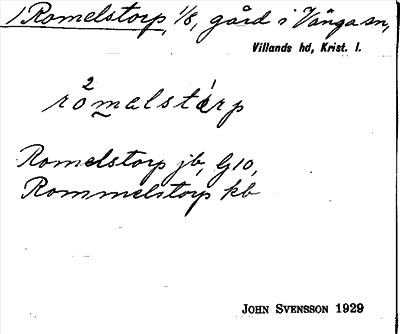 1 Romelstorp, 1/8, gård i Vånga sn,
Villands hd, Krist. l.
rò2malstòrp
Romelstorp jb, G10,
Rommelstorp kb
JOHN SVENSSON 1929